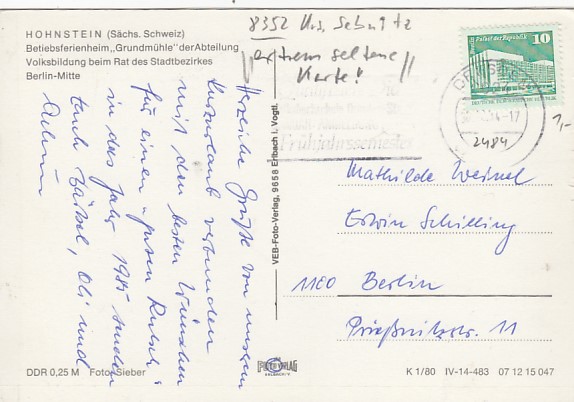 HOHNSTEIN (Sächs. Schweiz)
Betriebsferienheim „Grundmühle" der Abteilung
Volksbildung beim Rat des Stadtbezirkes
Berlin-Mitte
8352 Krs. Sebnitz
extrem seltene
Karte!
Berlin, Palast der Republik
10
DDR
Frühjahrssemester
2484
1,-
Herzliche Grüße von unserem
Kurzurlaub verbunden
mit den besten Wünschen
für einen „guten Rutsch"
in das Jahr 1985 senden
Euch Bärbel, Oli und
VEB-Foto-Verlag, 9658 Erlbach i. Vogtl.
Mathilde Weinel
Erwin Schilling
1180 Berlin
Prießnitzstr. 11
FOTO VERLAG
ERLBACH
DDR 0,25 M Foto: Sieber
K 1/80 IV-14-483 07 12 15 047